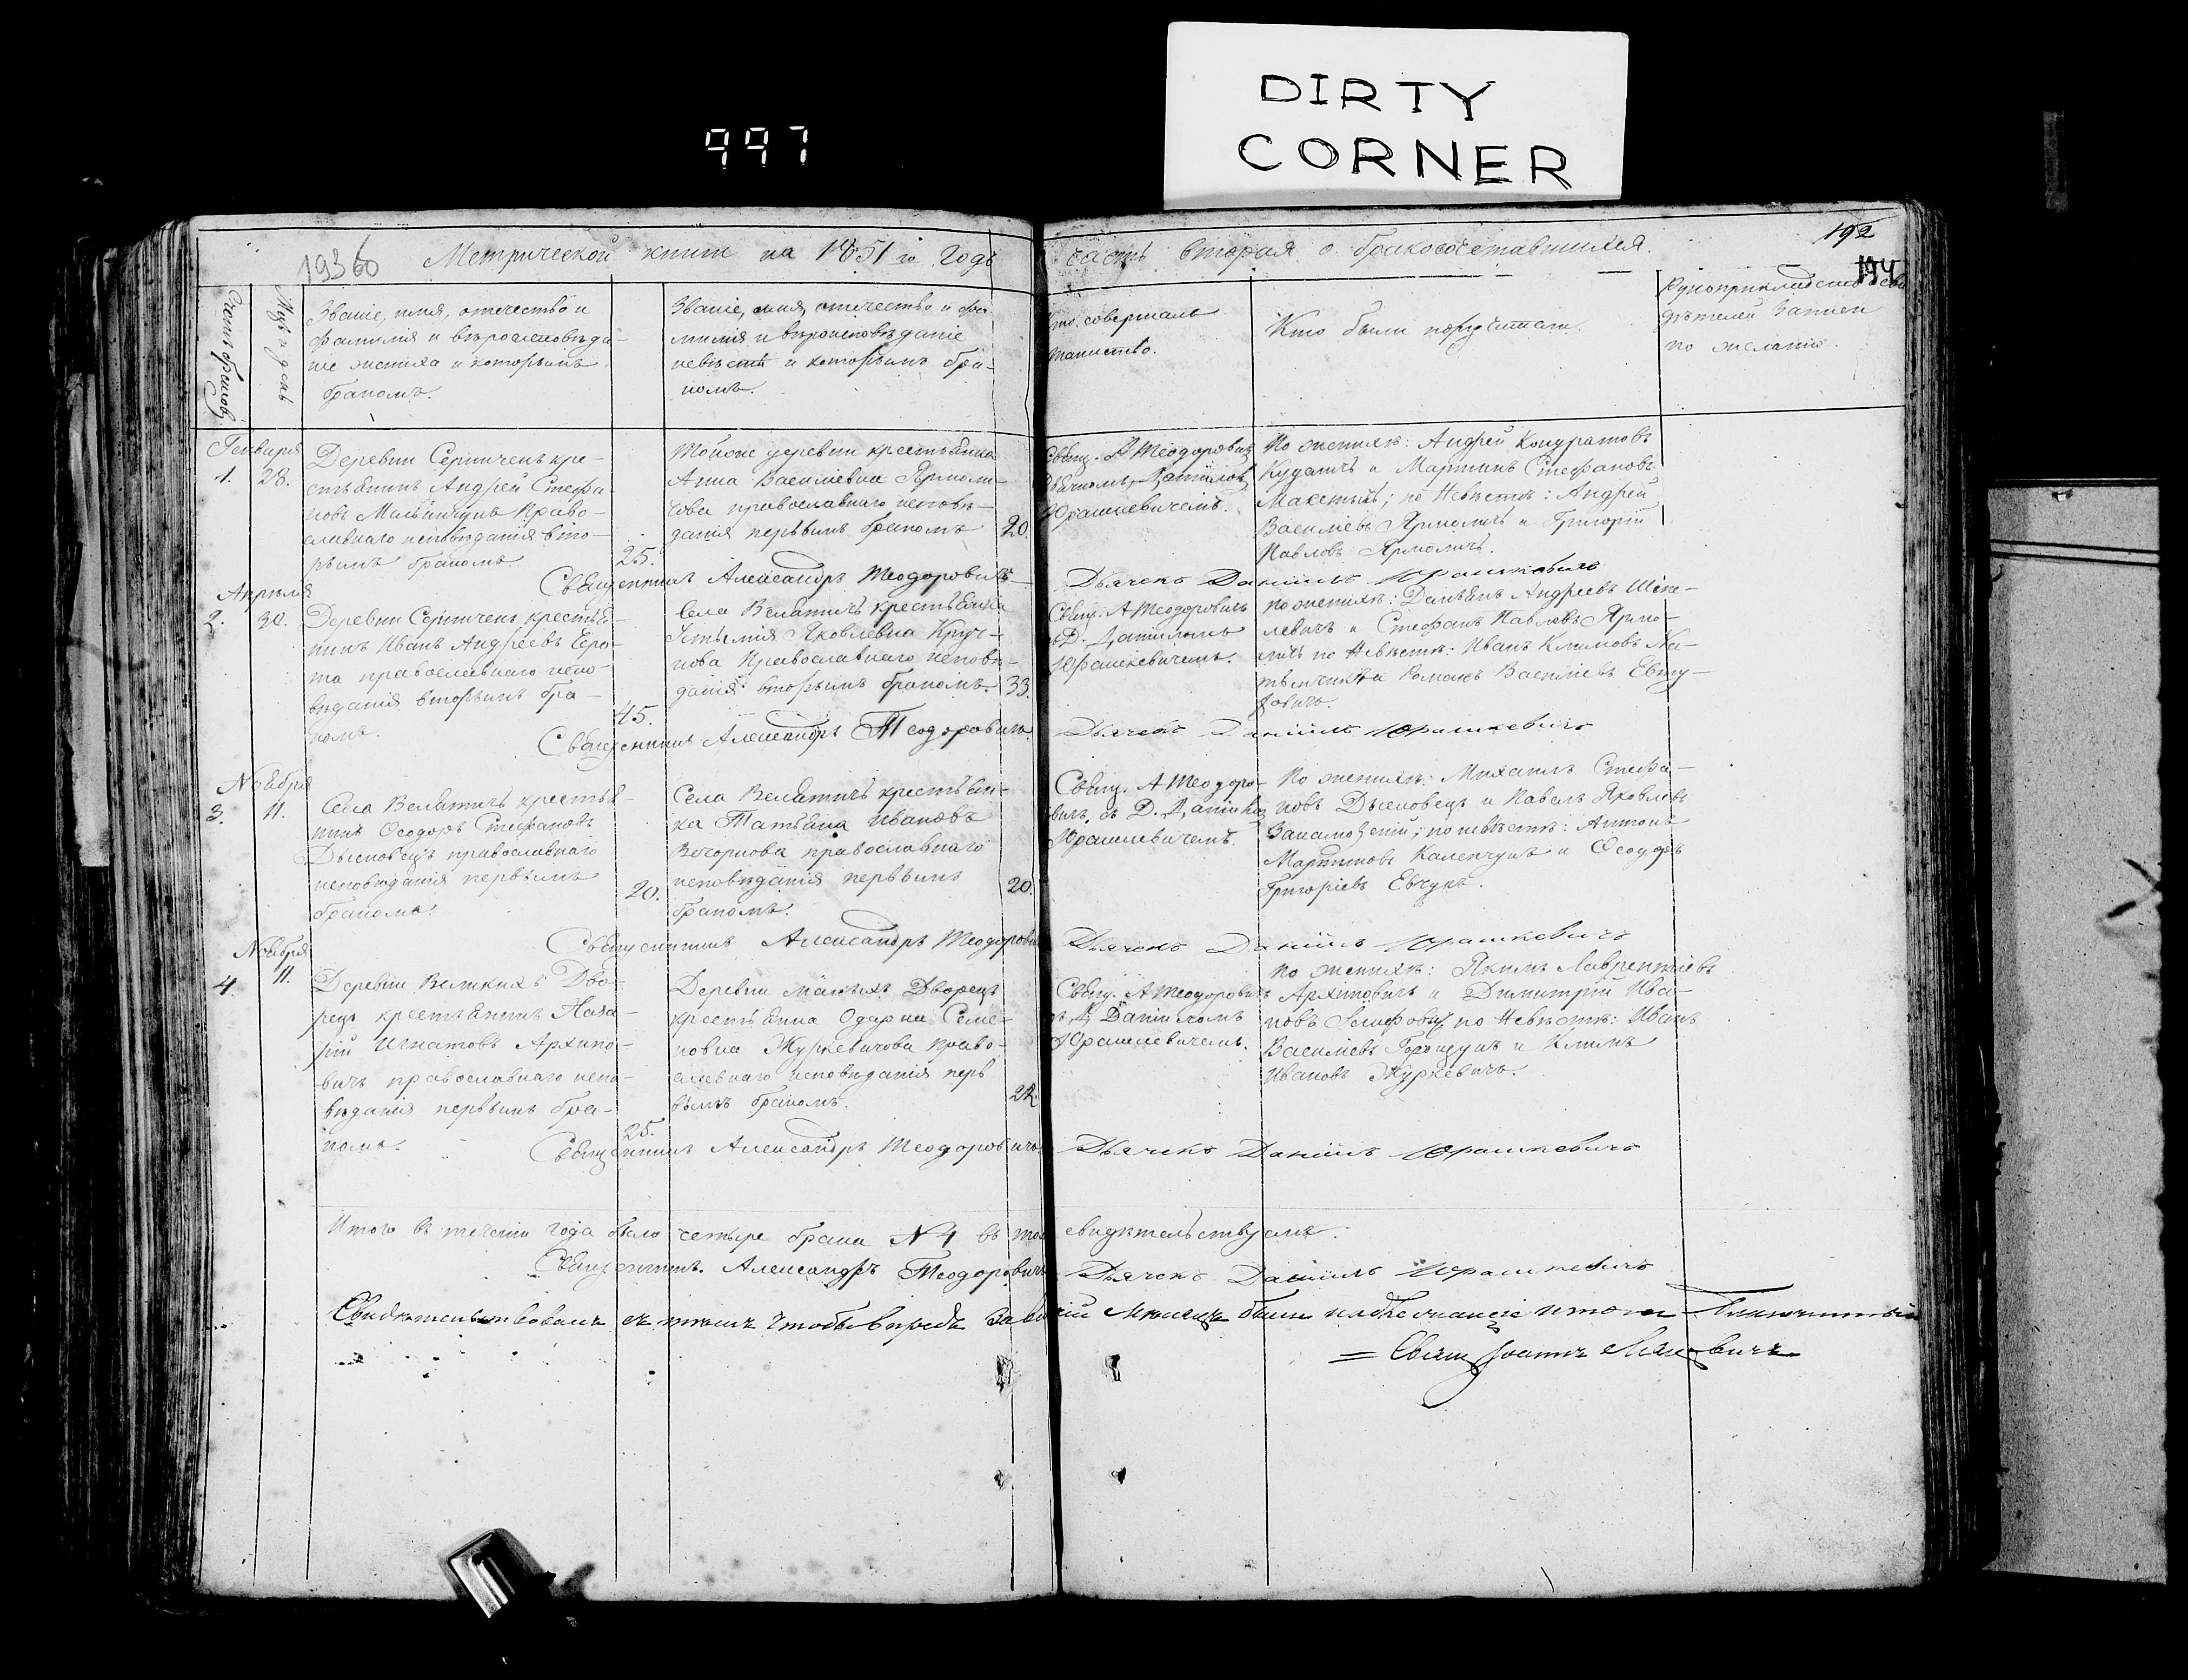 DIRTY
CORNER
997
19360 Метрической книги на 1851 го Годъ часть вторая о бракосочетавшихся.
192
194
Счетъ браковъ.
Мѣс. и день
Званіе, имя, отечество и
фамилія и вѣроисповѣда-
ніе жениха и которымъ
бракомъ.
Званіе, имя, отечество и фа-
милія и вѣроисповѣданіе
невѣсты и которымъ бра-
комъ.
Кто совершалъ
таинство.
Кто были поручители.
Рукоприкладство сви
дѣтелей записи
по желанію.
Генваря
1. 28.
Деревни Серничекъ кре-
стьянинъ Андрей Стефа-
новъ Право-
славнаго исповѣданія вто-
рымъ бракомъ.
25.
Тойже деревни крестьянка
Анна Василіевна Ярмоли-
чова православнаго исповѣ-
данія первымъ бракомъ
20.
Свящ. А Теодоровичъ
Дьячкомъ, Даніиломъ
Юрашкевичемъ.
По женихѣ: Андрей Кондратовъ
Кудаичъ и Мартинъ Стефановъ
по Невѣстѣ: Андрей
Василіевъ Ярмоличъ и Григорій
Павловъ Ярмоличъ.
Священникъ Александръ Теодоровичъ Дьячекъ Даніилъ Юрашкевичъ
Апрѣля
2. 30.
Деревни Серничекъ крестья-
нинъ Иванъ Андреевъ
та православнаго испо-
вѣданія вторымъ бра-
комъ.
45.
Села Велятичъ крестьянка
Яковлевна Круч-
кова Православнаго исповѣ-
данія вторымъ бракомъ.
33.
Свящ. А Теодоровичъ
съ Д. Даніиломъ
Юрашкевичемъ.
По женихѣ: Демьянъ Андреевъ
левичъ и Стефанъ Павловъ Ярмо-
личъ по Невѣстѣ: Иванъ Климовъ
и Романъ Василіевъ Евту-
ховичъ.
Священникъ Александръ Теодоровичъ Дьячекъ Даніилъ Юрашкевичъ
Ноября
3. 11.
Села Велятичъ крестья-
нинъ Ѳеодоръ Стефановъ
Дысковецъ православнаго
исповѣданія первымъ
бракомъ.
20.
Села Велятичъ крестьян-
ка Татьяна Ивановъ
Вечоркова православнаго
исповѣданія первымъ
бракомъ.
20.
Свящ. А Теодоро-
вичъ, съ Д. Даніиломъ
Юрашкевичемъ.
По женихѣ: Михаилъ Стефа-
новъ Дысковецъ и Павелъ Яковлевъ
по невѣстѣ: Антонъ
Мартиновъ Каленчукъ и Ѳеодоръ
Григоріевъ Евчукъ.
Священникъ Александръ Теодоровичъ Дьячекъ Даніилъ Юрашкевичъ
Ноября
4. 11.
Деревни Великихъ Дво-
рецъ крестьянинъ Наза-
рій Игнатовъ Архипо-
вичъ православнаго испо-
вѣданія первымъ бра-
комъ.
25.
Деревни малыхъ Дворецъ
крестьянка Одарка Семе-
новна Журкевичова право-
славнаго исповѣданія перв
вымъ бракомъ.
22
Свящ. А Теодоровичъ
съ Д Даніиломъ
Юрашкевичемъ.
По женихѣ: Якимъ Лаврентіевъ
Архиповичъ и Димитрій Ива-
новъ по Невѣстѣ: Иванъ
Василіевъ и Климъ
Ивановъ Журкевичъ.
Священникъ Александръ Теодоровичъ Дьячекъ Даніилъ Юрашкевичъ
Итого въ теченіи года было четыре брака N 4 въ томъ свидѣтельствуемъ.
Священникъ. Александръ Теодоровичъ Дьячекъ Даніилъ Юрашкевичъ
Свидѣтельствовалъ съ тѣмъ чтобы впредь
Свящ Іоаннъ